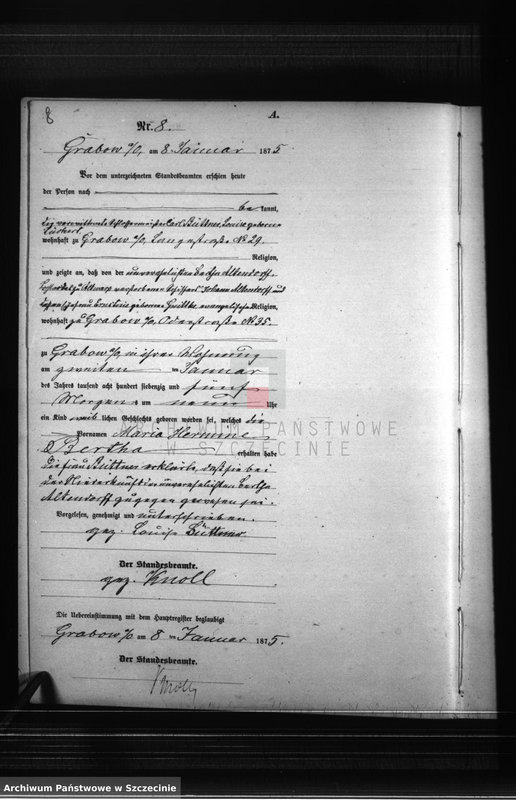 8
A.
Nr. 8.
Grabow a/O, am 8 Januar 1875
Vor dem unterzeichneten Standesbeamten erschien heute
der Person nach
be kannt,
die verwittwete Schlossermeister Carl Büttner, Louise geborene
wohnhaft zu Grabow a/O, Langestraße No 29.
Religion,
und zeigte an, daß von der unverehelichten Bertha Altendorff,
Tochter des zu verstorbenen Johann Altendorff und
geborene evangelischer Religion,
wohnhaft zu Grabow a/O, Oderstraße No 35.
zu Grabow a/O in ihrer Wohnung
am zweiten ten Januar
des Jahrs tausend acht hundert siebenzig und fünf
Morgens um neun Uhr
ein Kind weib lichen Geschlechts geboren worden sei, welches die
Vornamen Maria Hermine
Bertha erhalten habe
Die Frau Büttner erklärte, daß sie bei
der Niederkunft der unverehelichten Bertha
Altendorff zugegen gewesen sei.
Vorgelesen, genehmigt und unterschrieben.
gez. Louise Büttner
Der Standesbeamte.
gez. Knoll
Die Uebereinstimmung mit dem Hauptregister beglaubigt
Grabow a/O am 8 ten Januar 1875.
Der Standesbeamte.
Knoll
ARCHIWUM PAŃSTWOWE
W SZCZECINIE
Archiwum Państwowe w Szczecinie